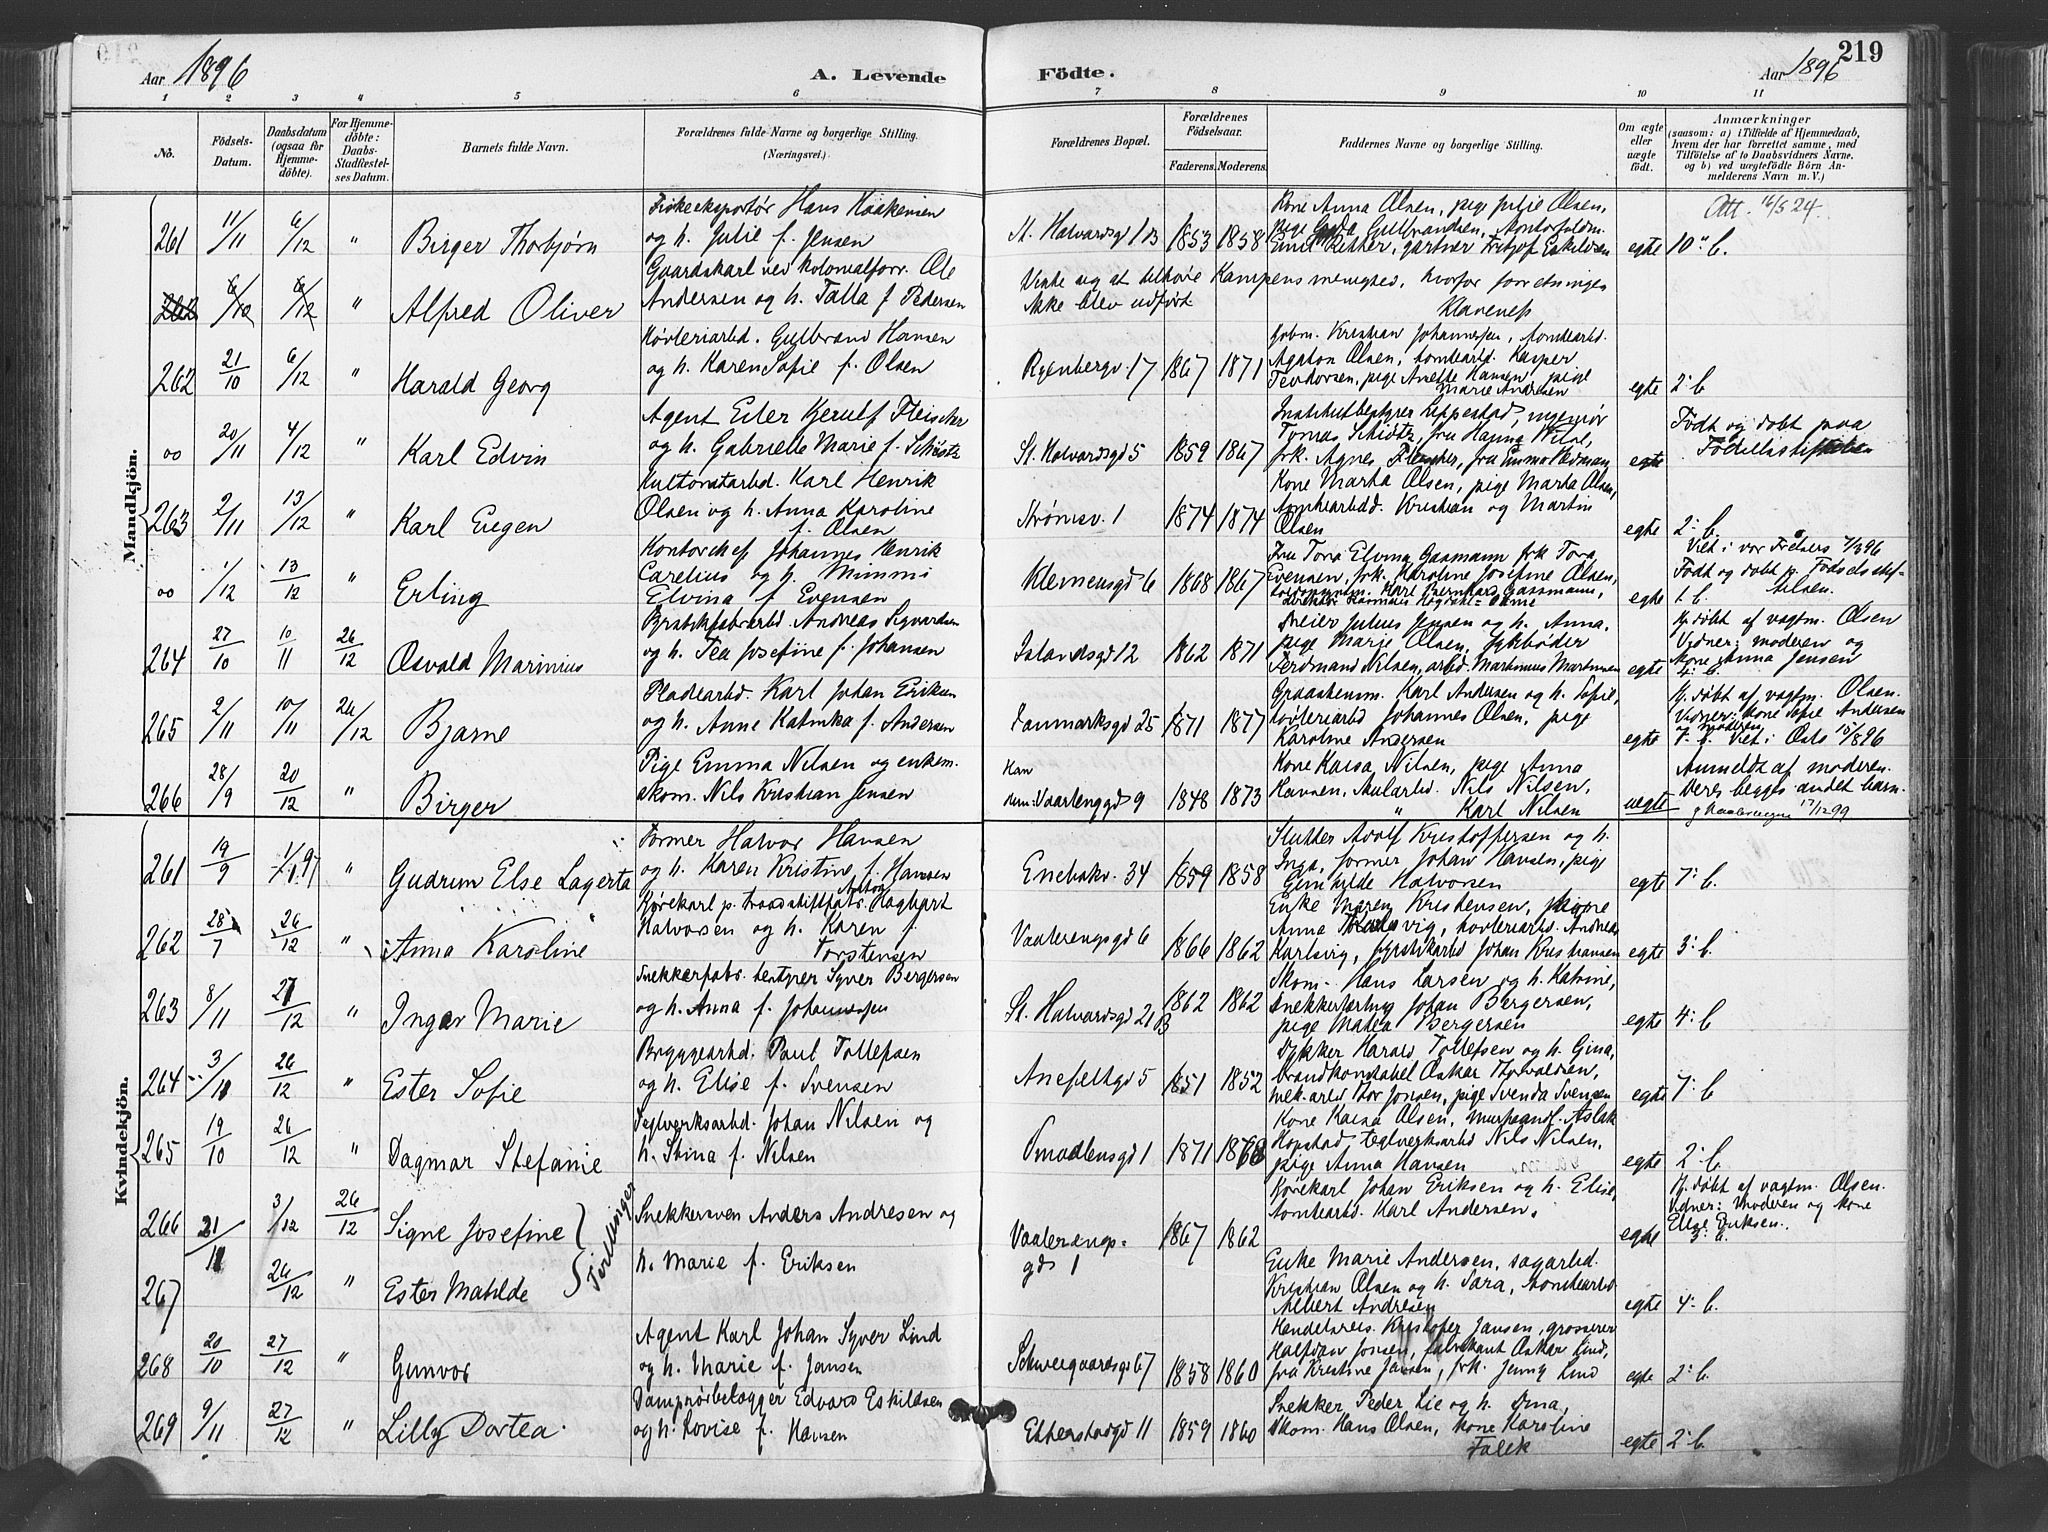 219
Aar 1896
A. Levende
Födte.
Aar 1896
1 2 3 4 5 6 7 8 9 10 11
No.
Födsels-Datum.
Daabsdatum (ogsaa for Hjemme-döbte).
For Hjemme-döbte: Daabs-Stadfæstel-ses Datum.
Barnets fulde Navn.
Forældrenes fulde Navne og borgerlige Stilling.
(Næringsvei.)
Forældrenes Bopæl.
Forældrenes Födselsaar.
Faderens. Moderens.
Faddernes Navne og borgerlige Stilling.
Om ægte eller uægte födt.
Anmærkninger
(saasom: a) i Tilfælde af Hjemmedaab,
hvem der har forrettet samme, med
Tilföielse af to Daabsvidners Navne,
og b) ved uægtefödte Börn An-
melderens Navn m. V.)
Mandkjön.
Att. 16/5 24.
261 11/11 6/12 " Birger Thorbjørn
Fiskeeksportør Hans Haakensen
og h. Julie f. Jensen
St. Halvardsgd 1 B 1853 1858
Kone Anna Olsen, pige Julie Olsen,
pige Gulbrandsen,
egte 10" b.
262 6/10 6/12 " Alfred Oliver
Gaardskarl ved kolonialforr. Ole
Andersen og h. Talla f Pedersen
Viste sig at tilhøre Kampens menighed, hvorfor forretningen
ikke blev udført
Klaveness
262 21/10 6/12 " Harald Georg
Høvleriarbd. Gulbrand Hansen
og h. Karen Sofie f. Olsen
Ryenbergv. 17 1867 1871
Kristian Johannesen, tomtearbd.
Agaton Olsen, tomtearbd. Kasper
Teodorsen, pige Anette Hansen, pige
Marie Andresen
egte 2: b
oo 20/11 4/12 " Karl Edvin
Agent Eiler Kjerulf Fleischer
og h. Gabrielle Marie f. Schiøtz
St. Halvardsgd 5 1859 1867
Institutbestyrer Lippestad, ingeniør
Tomas Schiøtz, fru Hanna
frk. Agnes Fleischer, fru Emma
egte
Født og døbt paa
Fødselsstiftelsen
263 2/11 13/12 " Karl Eugen
Karl Henrik
Olsen og h. Anna Karoline
f. Olsen
Strømsv. 1 1874 1874
Kone Marta Olsen, pige Marta Olsen,
Kristian og Martin
Olsen
egte 2: b.
oo 1/12 13/12 " Erling
Kontorchef Johannes Henrik
Carelius og h. Mimmi
Elvina f Evensen
Klemensgd 6 1868 1867
Fru Tora Elvina Gasmann frk Tora
Evensen, frk. Karoline Josefine Olsen,
Karl Bernhard Gassmann,
egte 1 b.
Viet i vor Frelsers 7/3 96
Født og døbt p. Fødselsstif-
telsen.
264 27/10 10/11 26/12 Osvald Marinius
Andreas Sigvardsen
og h. Tea Josefine f. Johansen
Islandsgd 12 1862 1871
Julius Jepsen og h. Anna.
pige Marie Olsen,
Ferdinand Nilsen, arbd. Martinius Martinsen
egte 4: b.
Hj. døbt af vagtm. Olsen
Vidner: moderen og
kone Anna Jensen
265 2/11 10/11 26/12 Bjarne
Pladearbd. Karl Johan Eriksen
og h. Anne Katinka f. Andersen
Danmarksgd 25 1871 1877
Karl Andersen og h. Sofie,
høvleriarbd Johannes Olsen, pige
Karoline Andersen
egte 1: b. Viet i Oslo 15/8 96
Hj. døbt af vagtm. Olsen.
Vidner: kone Sofie Andersen
og moderen
266 28/9 20/12 " Birger
Pige Emma Nilsen og enkem.
skom. Nils Kristian Jensen
Han
Vaalerenggd 9 1848 1873
Kone Kaisa Nilsen, pige Anna
Hansen, Nils Nilsen,
" Karl Nilsen
uegte
Anmeldt af moderen.
Deres begges andet barn.
17/12 99
Kvindekjön.
261 19/9 1/1 97 " Gudrun Else Lagerta
Former Halvor Hansen
og h. Karen Kristine f. Hansen
Enebakv. 34 1859 1858
Adolf Kristoffersen og h.
Inga, former Johan Hansen, pige
Gunhilde Halvorsen
egte 7: b.
262 28/7 26/12 " Anna Karoline
Kjørekarl p. Anton Hagbart
Halvorsen og h. Karen f.
Torstensen
Vaalerengsgd 6 1866 1862
Enke Maren Kristensen,
Anna høvleriarbd. Andreas
Karlsvig, Johan Kristiansen
egte 3: b.
263 8/11 27/12 " Inger Marie
Snekkerfabr. bestyrer Syver Bergersen
og h. Anna f. Johannesen
St. Halvardsgd 21 B 1862 1862
Skom. Hans Larsen og h. Katrine,
snekkerlærling Johan Bergersen,
pige Matea Bergersen
egte 4: b
264 3/11 26/12 " Ester Sofie
Bryggearbd. Paul Tollefsen
og h. Elise f. Svensen
Anefeltgd 5 1851 1852
Dykker Harald Tollefsen og h. Gina,
brandkonstabel Oskar Thorvaldsen,
Thor Jonsen, pige Svenda Svensen
egte 7: b
265 19/10 26/12 " Dagmar Stefanie
Teglverksarbd. Johan Nilsen og
h. Stina f. Nilsen
Smaalensgd 1 1871 1868
Kone Kaisa Olsen, Aslak
Hopstad teglverksarbd Nils Nilsen,
pige Anna Hansen
egte 2: b.
266 21/11 3/12 26/12 Signe Josefine
Tvillinger
Snekkersven Anders Andresen og
h. Marie f. Eriksen
Vaalerengs-
gd 1 1867 1862
Kjørekarl Johan Eriksen og h. Elise,
tomtearbd. Karl Andersen.
egte 3: b.
Hj. døbt af vagtm. Olsen.
Vidner: Moderen og kone
Elise Eriksen.
267 26/12 " Ester Matilde
Enke Marie Andersen, sagarbd.
Kristian Olsen og h. Sara, tomtearbd
Albert Andresen
egte 4: b.
268 20/10 27/12 " Gunvor
Agent Karl Johan Syver Lind
og h. Marie f. Jansen
Schweigaardsgd 67 1858 1860
Handelsreis. Kristofer Jansen, grosserer
Halfdan Jonsen, fabrikant Oskar Lind,
fru Kristine Jansen, frk. Jenny Lind
egte 2: b.
269 9/11 27/12 " Lilly Dortea.
Damprørbelægger Edvard Eskildsen
og h. Lovise f. Hansen
Etterstadgd 11 1859 1860
Snekker Peder Lie og h. Oma,
skom. Hans Olsen, kone Karoline
Falck
egte 2: b.